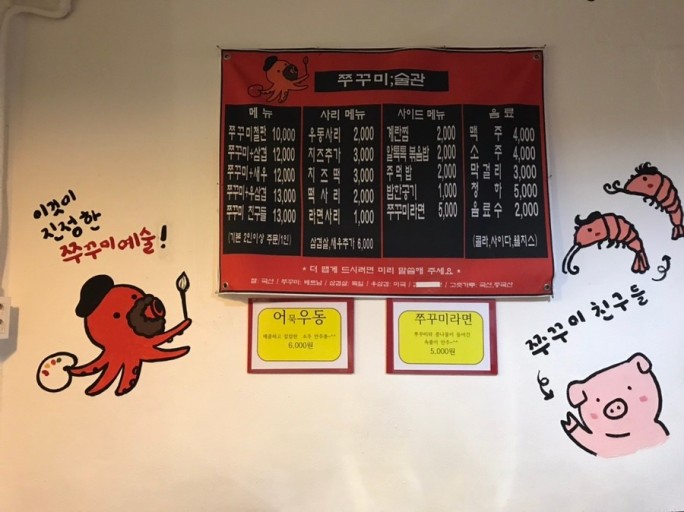 쭈꾸미;술관
메뉴
쭈꾸미철판 10,000
쭈꾸미+삼겹 12,000
쭈꾸미+새우 12,000
쭈꾸미+우삼겹 13,000
쭈꾸미 친구들 13,000
(기본 2인이상 주문/1인)
사리 메뉴
우동사리 2,000
치즈추가 3,000
치즈떡 3,000
떡사리 2,000
라면사리 1,000
삼겹살,새우추가 6,000
사이드 메뉴
계란찜 2,000
알톡톡 볶음밥 2,000
주먹밥 2,000
밥한공기 1,000
쭈꾸미라면 5,000
음료
맥주 4,000
소주 4,000
막걸리 3,000
청하 5,000
음료수 2,000
(콜라,사이다,웰치스)
* 더 맵게 드시려면 미리 말씀해 주세요 *
쌀: 국산 / 쭈꾸미: 베트남 / 삼겹살: 독일 / 우삼겹: 미국 / 고춧가루: 국산,중국산
이것이
진정한
쭈꾸미예술!
어묵우동
6,000원
쭈꾸미라면
쭈꾸미와 콩나물이 들어간
5,000원
쭈꾸미 친구들